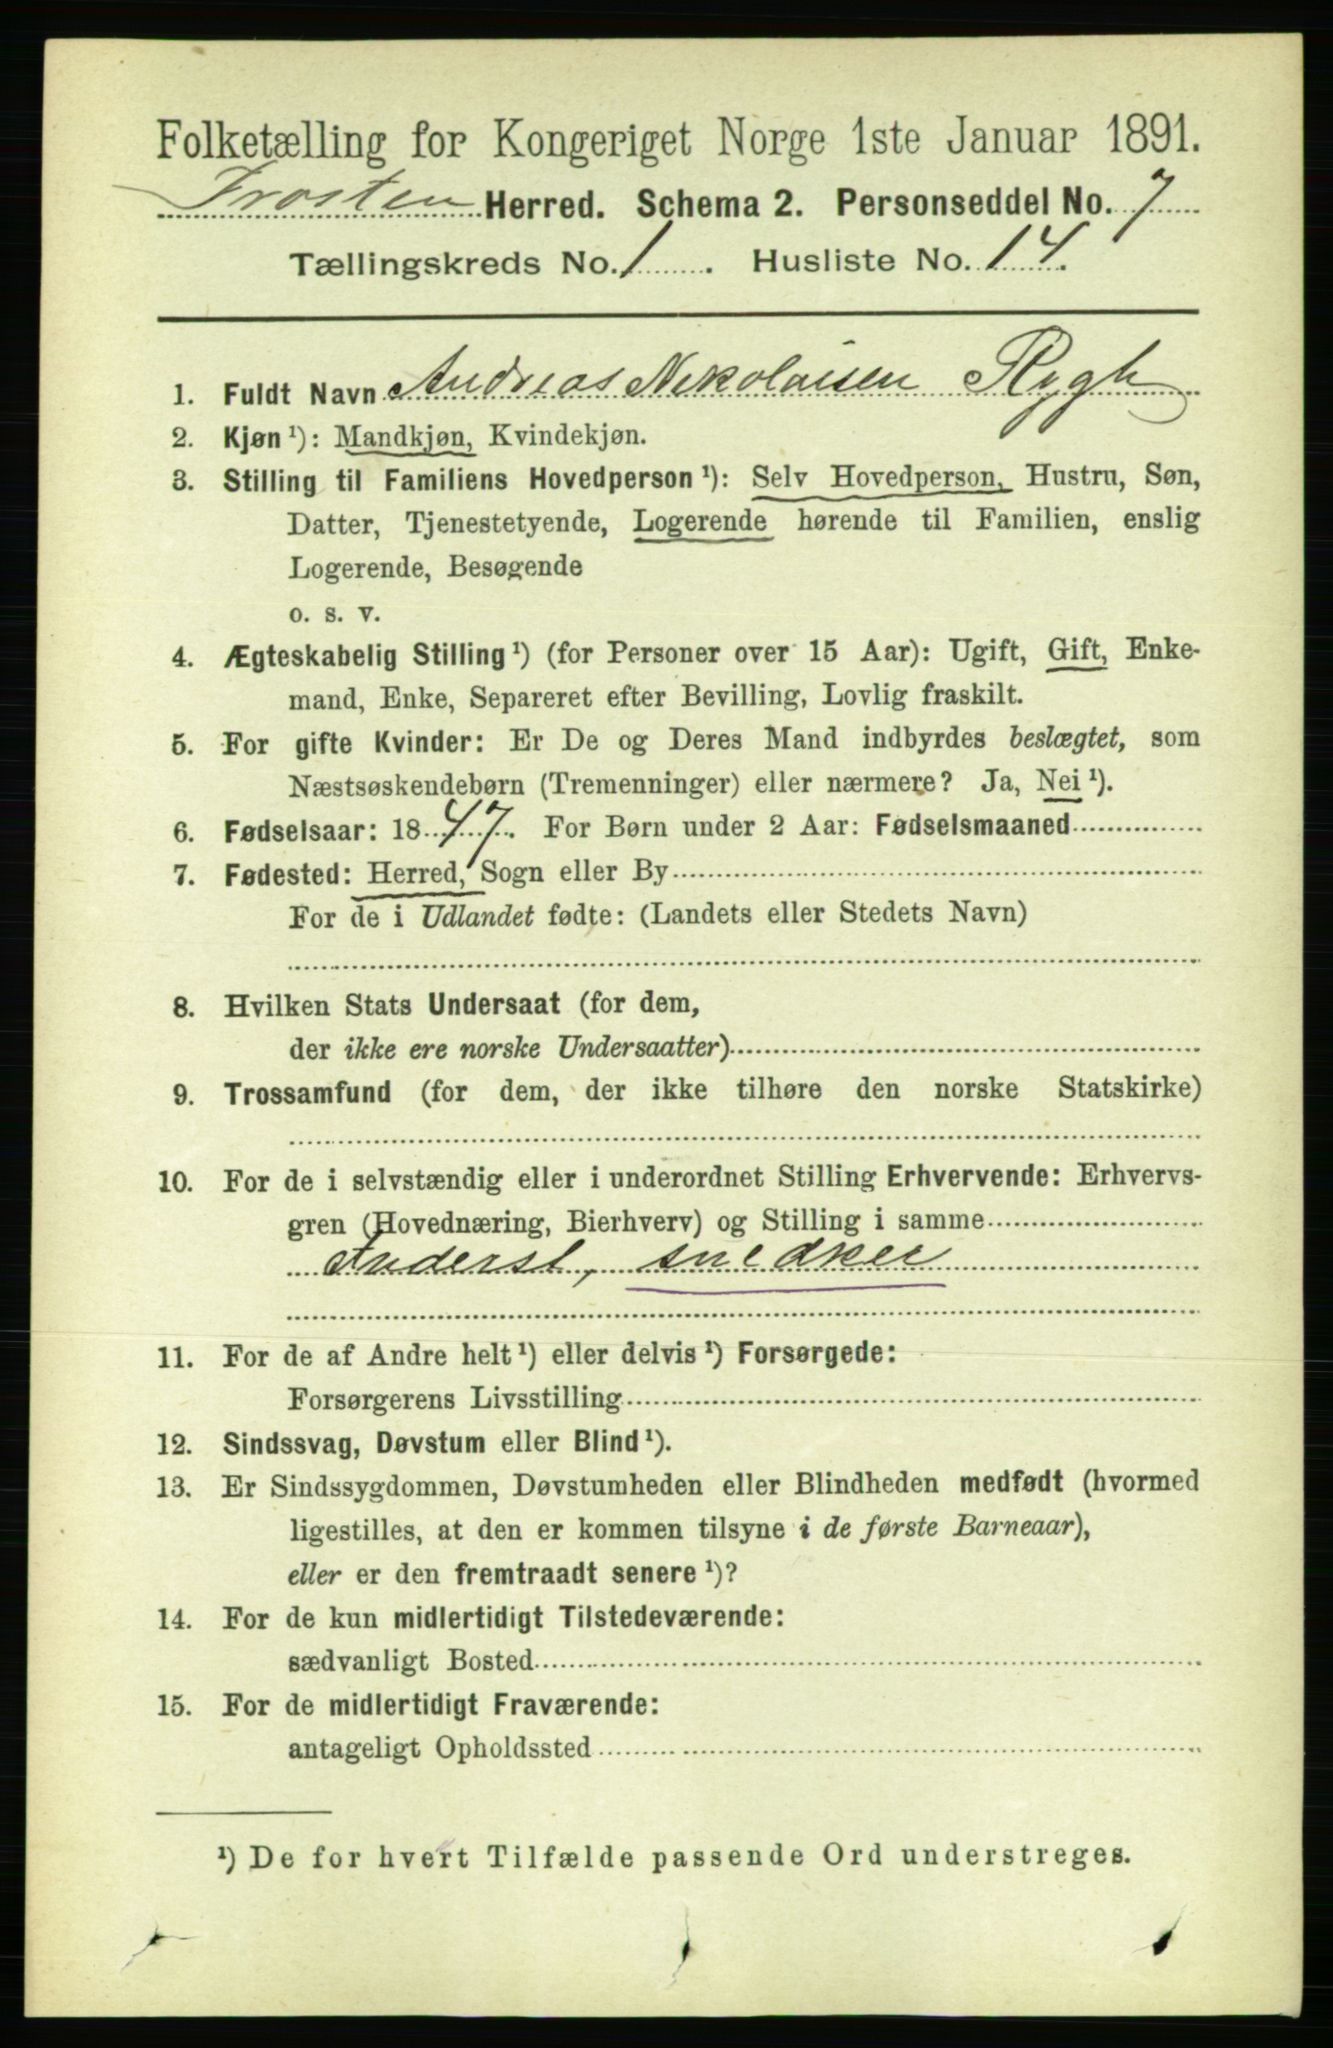 Folketælling for Kongeriget Norge 1ste Januar 1891.
Frosten Herred. Schema 2. Personseddel No. 7
Tællingskreds No. 1. Husliste No. 14.
1. Fuldt Navn Andreas Nikolaisen Rygh
2. Kjøn ¹): Mandkjøn, Kvindekjøn.
3. Stilling til Familiens Hovedperson ¹): Selv Hovedperson, Hustru, Søn,
Datter, Tjenestetyende, Logerende hørende til Familien, enslig
Logerende, Besøgende
o. s. v.
4. Ægteskabelig Stilling ¹) (for Personer over 15 Aar): Ugift, Gift, Enke-
mand, Enke, Separeret efter Bevilling, Lovlig fraskilt.
5. For gifte Kvinder: Er De og Deres Mand indbyrdes beslægtet, som
Næstsøskendebørn (Tremenninger) eller nærmere? Ja, Nei ¹).
6. Fødselsaar: 1847. For Børn under 2 Aar: Fødselsmaaned
7. Fødested: Herred, Sogn eller By
For de i Udlandet fødte: (Landets eller Stedets Navn)
8. Hvilken Stats Undersaat (for dem,
der ikke ere norske Undersaatter)
9. Trossamfund (for dem, der ikke tilhøre den norske Statskirke)
10. For de i selvstændig eller i underordnet Stilling Erhvervende: Erhvervs-
gren (Hovednæring, Bierhverv) og Stilling i samme
Inderst, snedker
11. For de af Andre helt ¹) eller delvis ¹) Forsørgede:
Forsørgerens Livsstilling
12. Sindssvag, Døvstum eller Blind ¹).
13. Er Sindssygdommen, Døvstumheden eller Blindheden medfødt (hvormed
ligestilles, at den er kommen tilsyne i de første Barneaar),
eller er den fremtraadt senere ¹)?
14. For de kun midlertidigt Tilstedeværende:
sædvanligt Bosted
15. For de midlertidigt Fraværende:
antageligt Opholdssted
¹) De for hvert Tilfælde passende Ord understreges.